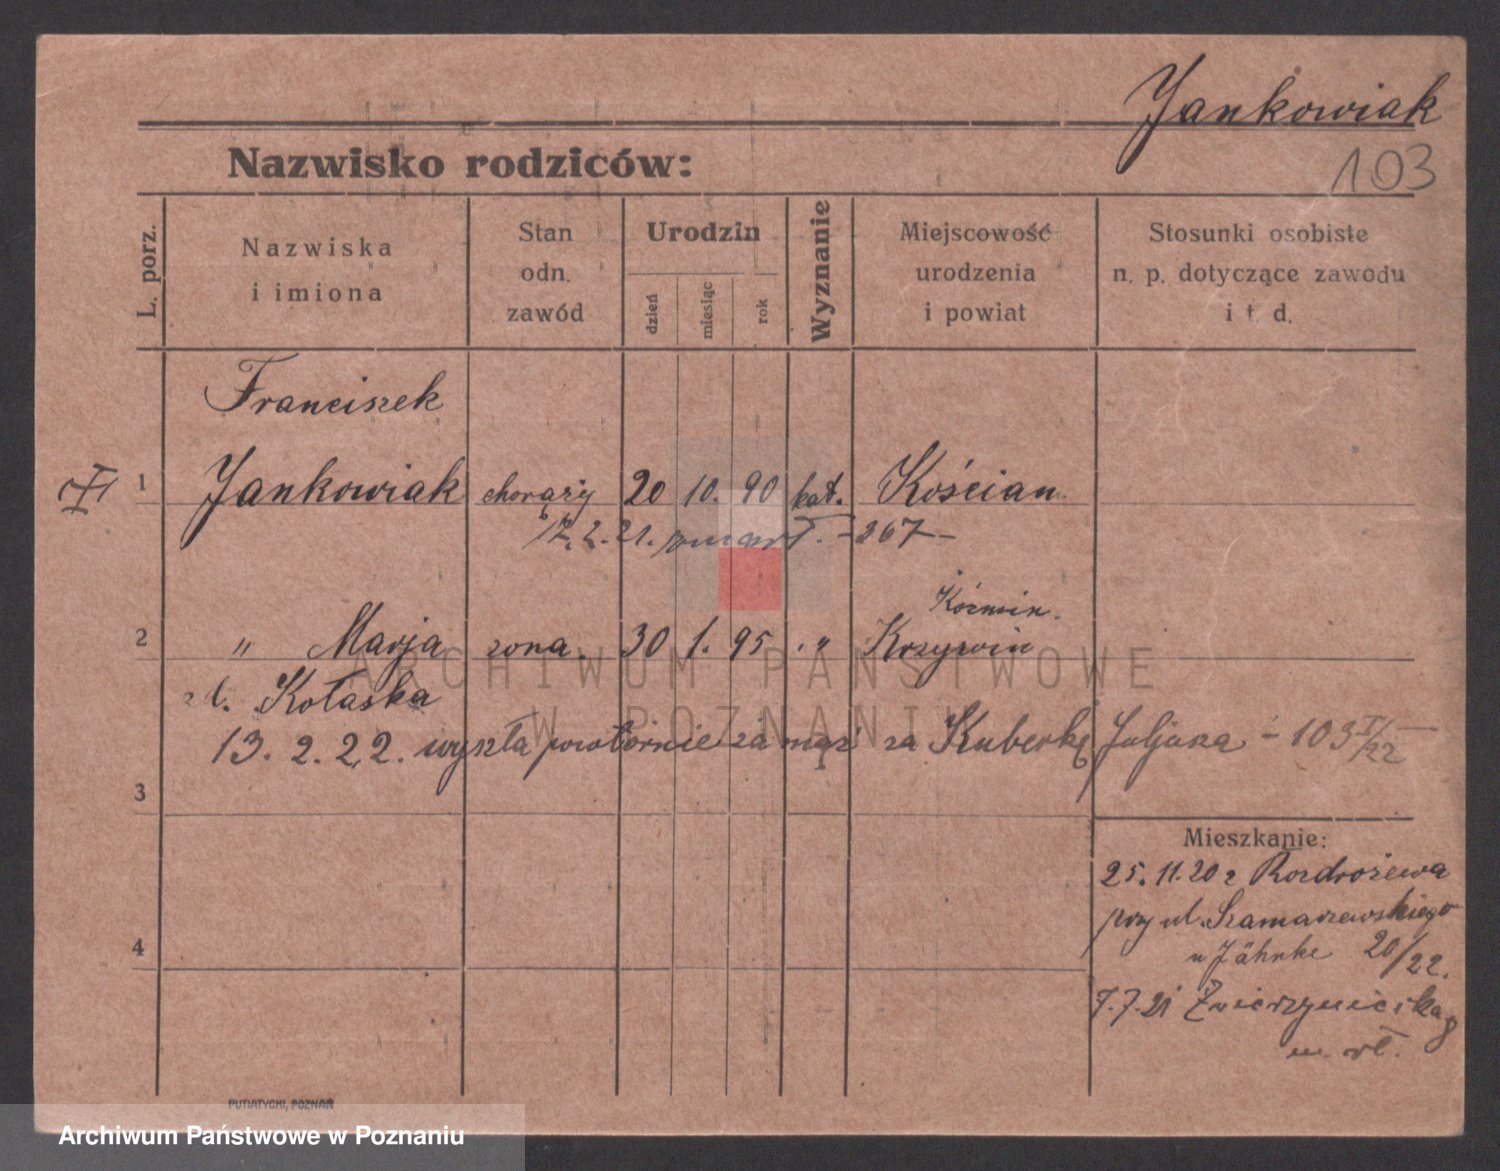 Jankowiak
103
Nazwisko rodziców:
L. porz.
Nazwiska
i imiona
Stan
odn.
zawód
Urodzin
dzień
miesiąc
rok
Wyznanie
Miejscowość
urodzenia
i powiat
Stosunki osobiste
n. p. dotyczące zawodu
i t d.
Franciszek
1 Jankowiak chorąży 20 10. 90 kat. Kościan
17. 2. 21. zmarł. - 367 -
Koźmin.
2 " Marja żona. 30 1. 95 " Krzywin
d. Kołaska
13. 2. 22. wyszła powtórnie za mąż za Kuberkę Juljana - 103 I/22
3
Mieszkanie:
25. 11. 20 z Rozdrożewa
przy ul. Szamarzewskiego
u Jähnke 20/22.
4
7. 7. 21 Zwierzyniecka 8
m. wł.
PUTIATYCKI, POZNAŃ
ARCHIWUM PAŃSTWOWE
W POZNANIU
Archiwum Państwowe w Poznaniu